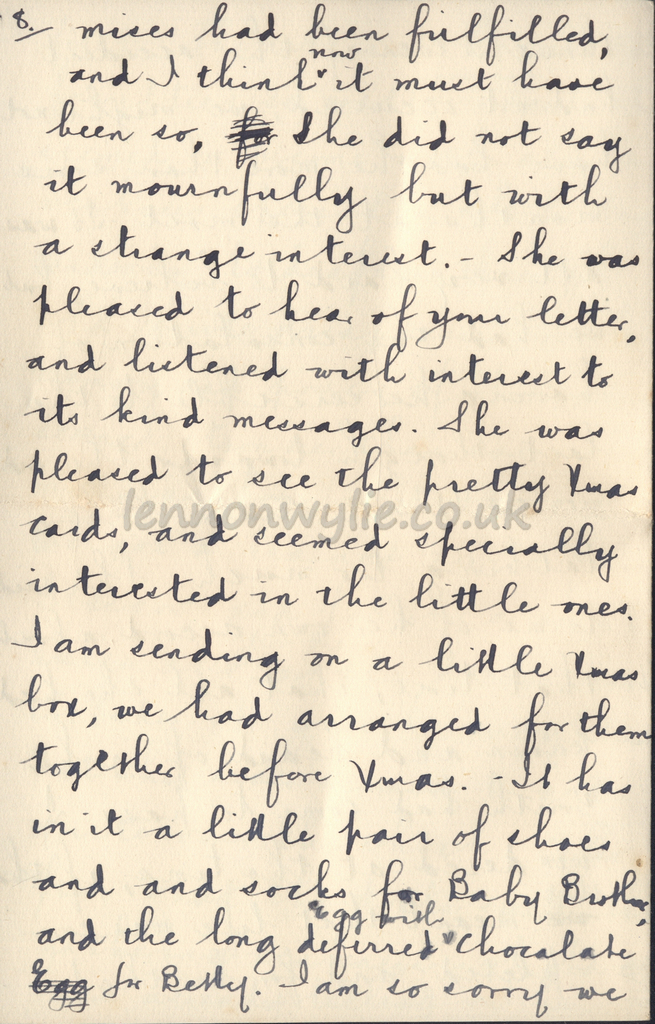 8. mises had been fulfilled,
now
and I think it must have
been so, She did not say
it mournfully but with
a strange interest. - She was
pleased to hear of your letter,
and listened with interest to
its kind messages. She was
pleased to see the pretty Xmas
lennonwylie.co.uk
cards, and seemed specially
interested in the little ones.
I am sending on a little Xmas
box, we had arranged for them
together before Xmas. - It has
in it a little pair of shoes
and and socks for Baby Brother,
"Egg with
and the long deferred " Chocolate
Egg for Betty. I am so sorry we